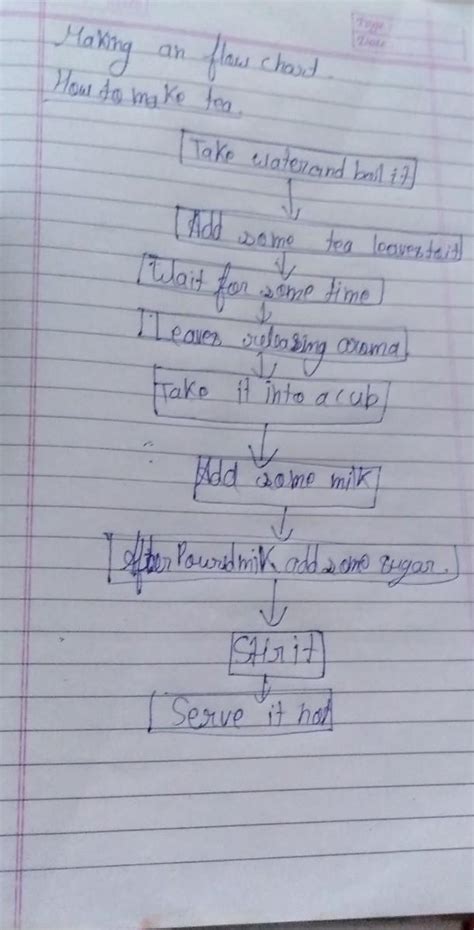 Page
Date
Making an flow chart.
How to make tea.
Take water and boil it
Add some tea leaves to it
Wait for some time
Leaves releasing aroma
Take it into a cub
Add some milk
After Pourd milk add some sugar.
Stir it
Serve it hot